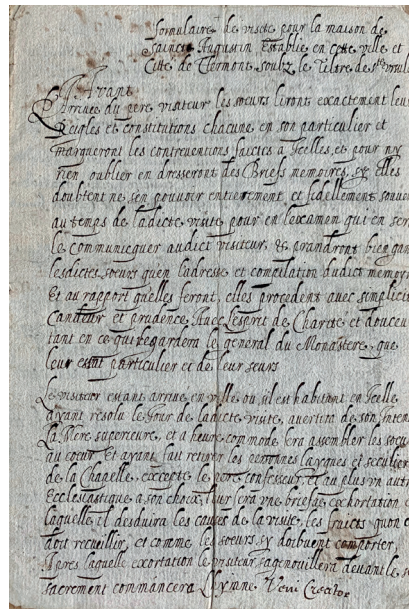 formulaire de visite pour la maison de
Sainct Augustin establie en cette ville et
Citté de Clermont soubz le tiltre de Ste Ursule
Avant
Larrivée du pere visiteur les sœurs liront exactement leur
Reigles et constitutions chacune en son particulier et
marqueront les contreventions faictes a Icelles, et pour ny
rien oublier en dresseront des Briefs memoires, sy elles
doubtent ne sen pouvoir entierement et fidellement souve
au temps de ladicte visite pour en lexamen qui en sera
le communiequer audict visiteur, & prandront bien gar
lesdictes sœurs quen ladresse et compilation dudict memoi
Et au rapport quelles feront, elles procedent avec simplicit
Candeur et prudence Avec lesprit de Charité et douceu
tant en ce qui regardera le general du Monastere, que
leur estat particulier et de leur seurs
Le visiteur estant arrivé en ville ou sil est habitant en Icelle
ayant resolu le Jour de ladicte visite, avertira de son inten
La Mere superieure, et a heure commode fera assembler les sœu
au cœur Et ayant fait retirer les personnes layques et seculier
de la Chapelle, excepté le pere confesseur, et au plus un autr
Ecclesiastique a son choix, leur fera une briefve exhortation e
laquelle il desduira les causes de la visite, les fruicts quon e
doit recueillir, et comme les sœurs sy doibvent comporter,
Apres laquelle exortation le visiteur sagenouillera devant le s
sacrement commancera Lyxne Veni Creator